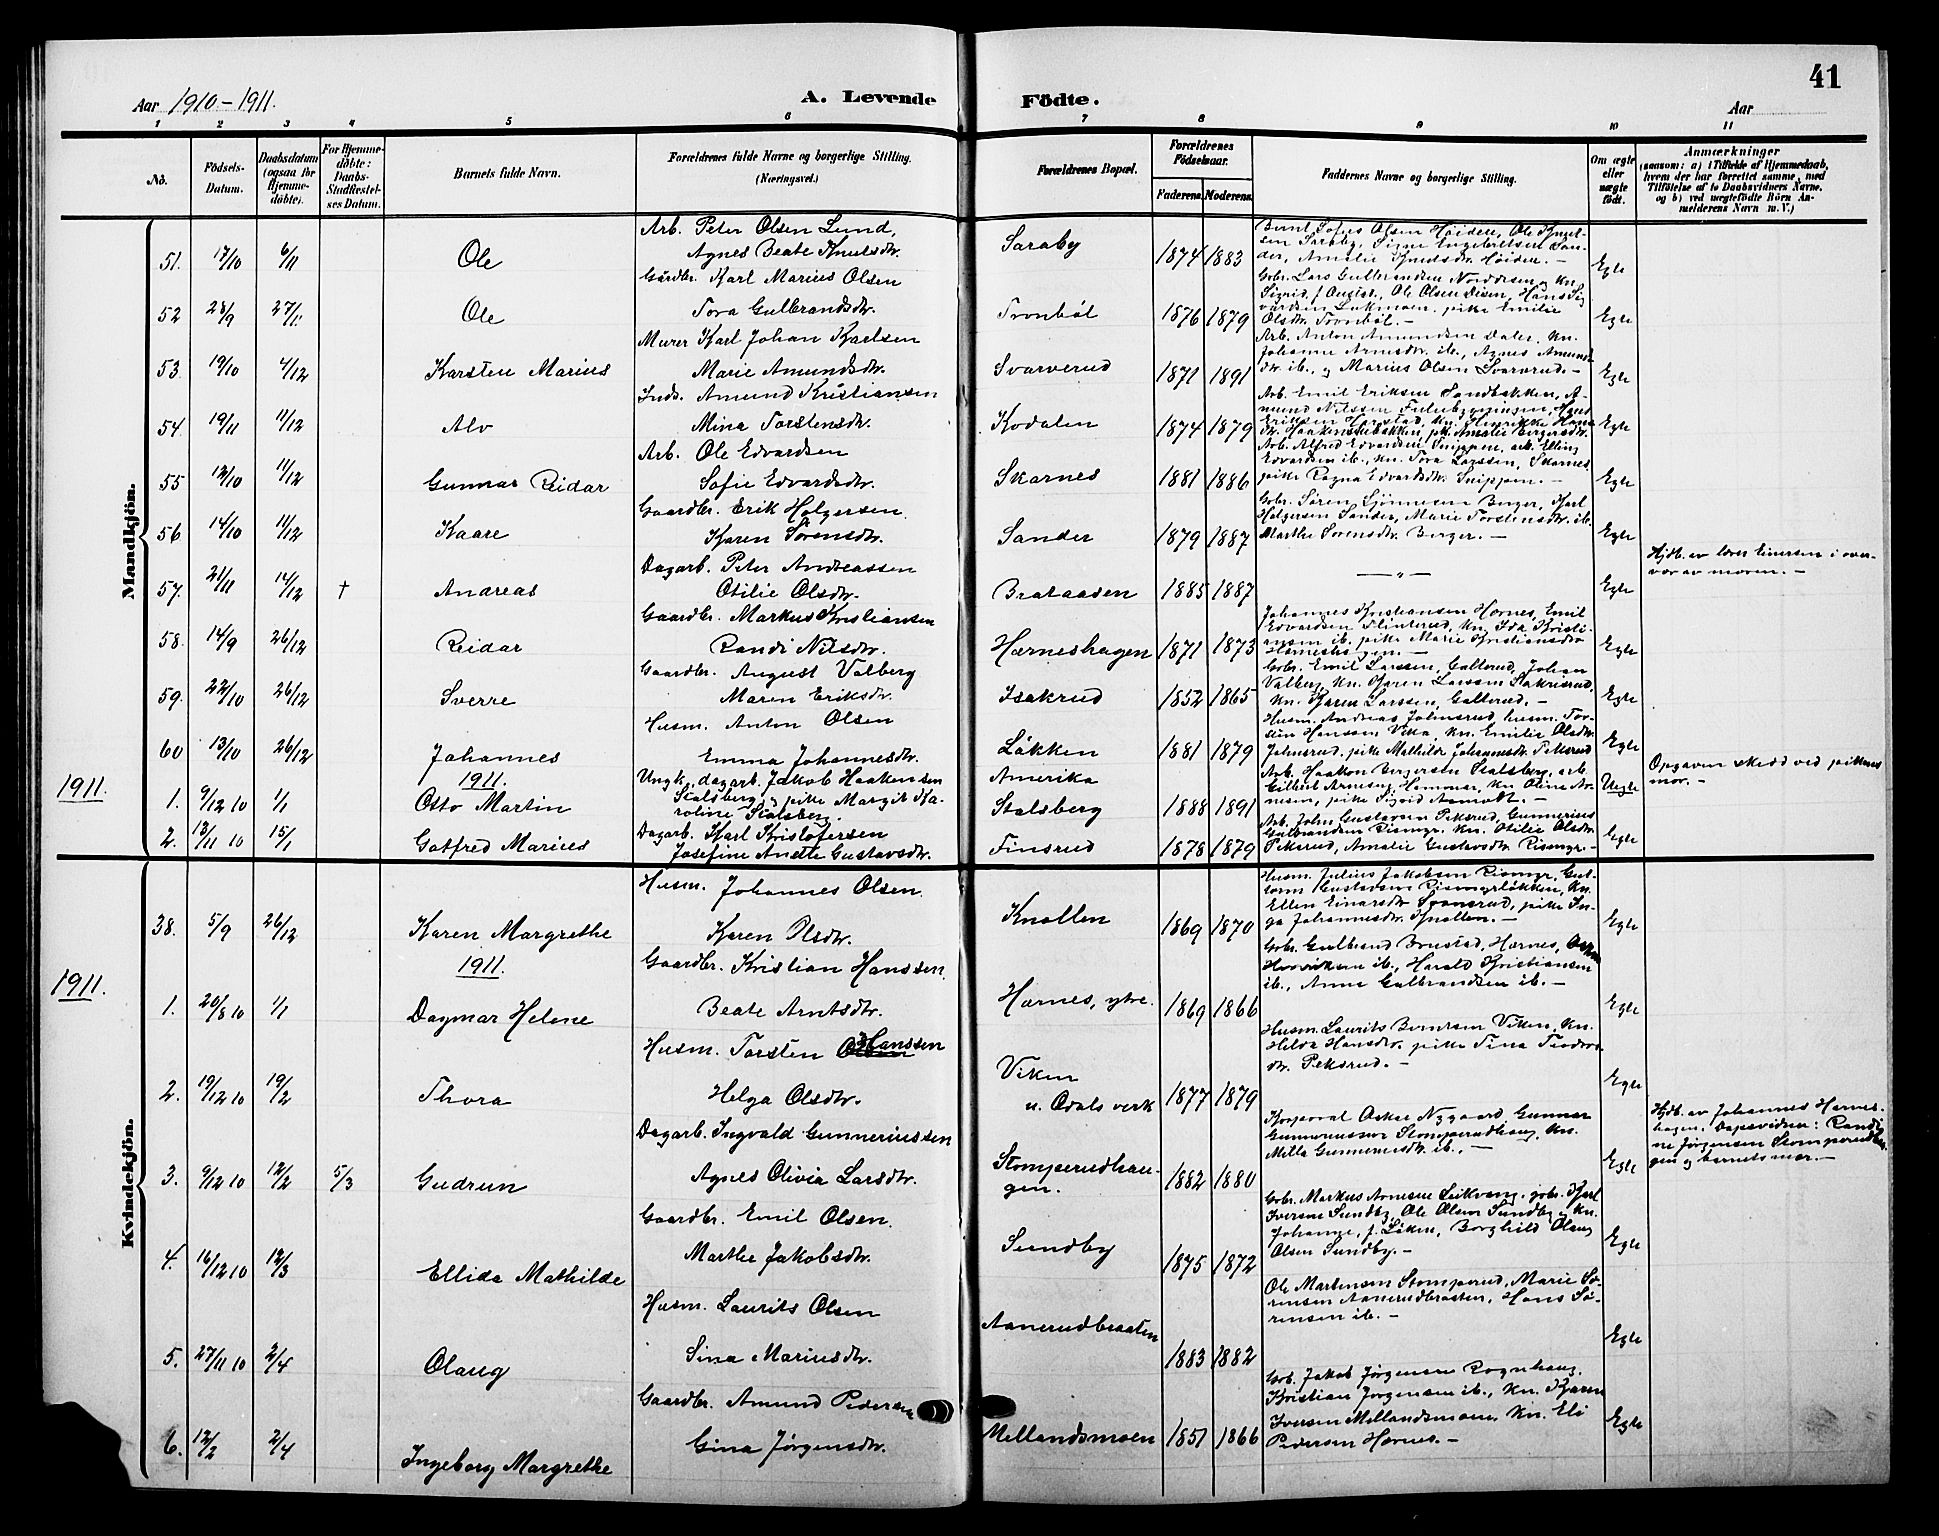 Aar 1910-1911.
A. Levende Födte.
Aar
41
1 2 3 4 5 6 7 8 9 10 11
No.
Födsels-Datum.
Daabsdatum (ogsaa for Hjemme-döbte).
For Hjemme-döbte: Daabs-Stadfæstel-ses Datum.
Barnets fulde Navn.
Forældrenes fulde Navne og borgerlige Stilling. (Næringsvei.)
Forældrenes Bopæl.
Forældrenes Födselsaar.
Faderens. Moderens.
Faddernes Navne og borgerlige Stilling.
Om ægte eller uægte födt.
Anmærkninger
(saasom: a) i Tilfælde af Hjemmedaab, hvem der har forrettet samme, med Tilföielse af to Daabsvidners Navne, og b) ved uægtefödte Börn An-melderens Navn m. V.)
Mandkjön.
51. 17/10 6/11 Ole
Arb. Peter Olsen Lund,
Agnes Beate Knutsdtr.
Saraby 1874 1883
Bernt Sofus Olsen Høiden, Ole Knut-
sen Saraby, Signe Engebretsen San-
der, Amalie Knutsdtr. Høiden. -
Egte
52 28/9 27/11 Ole
Gårdbr. Karl Marius Olsen
Tora Gulbrandsdtr.
Tronböl 1876 1879
Gbr. Lars Gulbrandsen Norddisen, kn.
Sigrid, Ole Olsen Disen, Hans Sig
pike Emilie
Olsdtr. Tronböl. -
Egte
53. 19/10 4/12 Karsten Marius
Murer Karl Johan Karlsen
Marie Amundsdtr.
Svarverud 1871 1891
Arb. Anton Amundsen Daler, kn.
Johanne Arnesdtr. ib., Agnes Amunds
dtr. ib., og Marius Olsen Svarverud. -
Egte
54. 19/11 11/12 Alv
Inds. Amund Kristiansen
Mina Torstensdtr.
Kodalen 1874 1879
Arb. Emil Eriksen Sandbakken, A-
mund Nilssen
Egte
55 12/10 11/12 Gunnar Reidar
Arb. Ole Edvardsen
Sofie Edvardsdtr.
Skarnes 1881 1886
Arb. Alfred Edvardsen Snippen, arb. Elling
Edvardsen ib., kn. Tora Larssen, Skarnes,
pike Ragna Edvardsdtr. Snippen. -
Egte
56 14/10 11/12 Kaare
Gaardbr. Erik Holgersen.
Karen Sørensdtr.
Sander 1879 1887
Gbr. Søren Berger, Karl
Holgersen Sander, Marie Torstensdtr. ib.
Marthe Sørensdtr. Berger. -
Egte
57. 21/11 14/12 † Andreas
Dagarb. Peter Andreassen
Otilie Olsdtr.
Brataasen 1885 1887
— " —
Egte
Hjdb. av lærer Einersen i over-
vær av moren. -
58. 14/9 26/12 Reidar
Gaardbr. Markus Kristiansen
Randi Nilsdtr.
Hærneshagen 1871 1873
Johannes Kristiansen Hærnes, Emil
Edvardsen Flinterud, kn. Ida Kristi-
ansen ib., pike Marie Kristiansdtr
Egte
59. 22/10 26/12 Sverre
Gaardbr. August Valberg
Maren Eriksdtr.
Isakrud 1852 1865
Gbr. Emil Larssen, Galterud, Johan
Valberg, kn. Karen Larssen Isakrud,
kn. Karen Larssen, Galterud. -
Egte
60 13/10 26/12 Johannes
Husm. Anton Olsen
Emma Johannesdtr.
Løkken 1881 1879
Husm. Andreas Johnsrud, husm. Tor-
sten Hanssen Vika, kn. Emilie Olsdtr.
Johnsrud, pike Mathilde Johannesdtr. Peksrud
Egte
1911.
1911.
1. 9/12 10 1/1 Otto Martin
Ungk. dagarb. Jakob Haakensen
Stalsberg og pike Margit Ka-
roline Stalsberg.
Amerika
Stalsberg 1888 1891
Arb. Haakon Bergersen Stalsberg, arb.
Gilbert Arnesen, Hammaren, kn. Oline Ar-
nesen, pike Sigrid -
Uegte
Opgaven skedd ved pikens
mor. -
2. 13/11 10 15/1 Gotfred Marius
Dagarb. Karl Kristofersen
Josefine Anette Gustavsdtr.
Finsrud 1878 1879
Arb. John Gustavsen Peksrud, Gunnerius
Gulbrandsen Rismyr, kn. Otilie Olsdtr.
Peksrud, Amalie Gustavsdtr. Rismyr. -
Egte
Kvindekjön.
38. 5/9 26/12 Karen Margrethe
Husm. Johannes Olsen.
Karen Olsdtr.
Knollen 1869 1870
Husm. Julius Jakobsen Rismyr, Gut-
torm Gustavsen Rismyrløkken, kn.
Ellen Einarsdtr. Svensrud, pike In-
ga Johannesdtr. Knollen. -
Egte
1911.
1911.
1. 20/8 10 1/1 Dagmar Helene
Gaardbr. Kristian Hanssen.
Beate Arntsdtr.
Hærnes, ytre. 1869 1866
Gbr. Gulbrand Brustad, Hærnes,
ib., Harald Kristiansen
ib., Anna Gulbrandsen ib. -
Egte
2. 19/12 10 19/2 Thora
Husm. Torsten Olsen Hanssen
Helga Olsdtr.
Viken
u. Odals verk 1877 1879
Husm. Laurits Berntsen Viken, kn.
Hilda Hansdtr., pike Tina Teodors
dtr. Peksrud. -
Egte
3. 9/12 10 12/2 5/3 Gudrun
Dagarb. Ingvald Gunneriussen
Agnes Olivia Larsdtr.
Stomperudhau-
gen. 1882 1880
Korporal Oskar Nygaard, Gunnar
Gunneriussen Stomperudhaug, kn.
Milla Gunneriusdtr. ib., -
Egte
Hjdb. av Johannes Hærnes-
hagen. Dapsvidner: Randi
ne Jørgensen Stomperudhau
gen og barnets mor. -
4. 16/12 10 12/3 Ellida Mathilde
Gaardbr. Emil Olsen.
Marthe Jakobsdtr.
Sundby 1875 1872
Gbr. Markus Arnesen Leikvang, gbr. Karl
Iversen Sundby, Ole Olsen Sundby, kn.
Johanne, f. Løken, Borghild Olaug
Olsen Sundby. -
Egte
5. 27/11 10 2/4 Olaug
Husm. Laurits Olsen
Sina Mariusdtr.
Aanerudbraaten 1883 1882
Ole Martinsen Stomperud, Marie Sø-
rensen Aanerudbraaten, Hans Sø-
rensen ib. -
Egte
6. 12/2 2/4 Ingeborg Margrethe
Gaardbr. Amund Pedersen
Gina Jørgensdtr.
Mellandsmoen 1851 1866
Gbr. Jakob Jørgensen Rognhaug,
Kristian Jørgensen ib., kn. Karen
Iversen Mellandsmoen, kn. Eli
Pedersen Hærnes. -
Egte